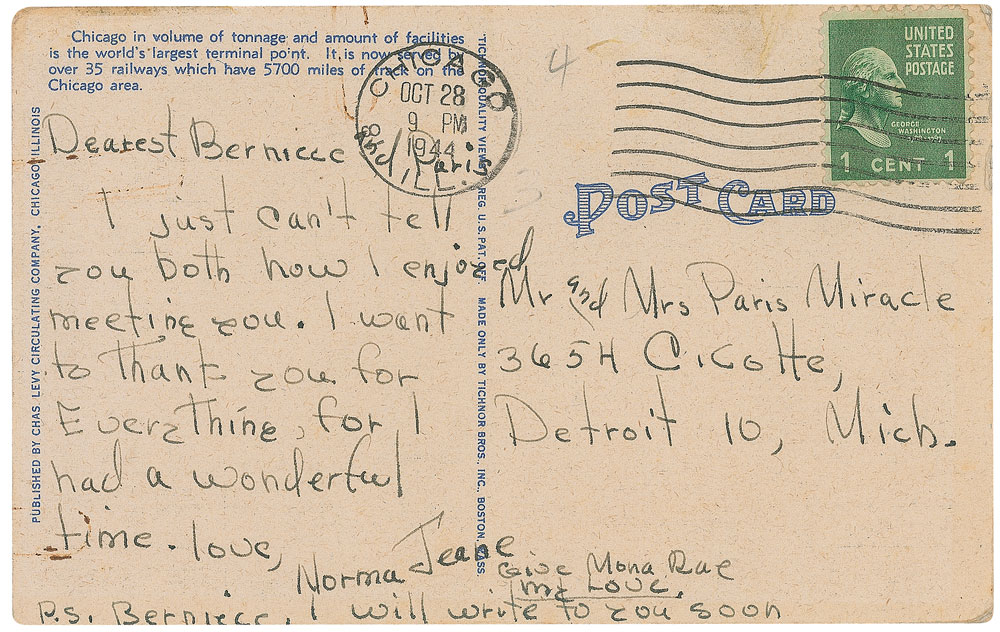 Chicago in volume of tonnage and amount of facilities
is the world's largest terminal point. It is now served by
over 35 railways which have 5700 miles of track on the
Chicago area.
PUBLISHED BY CHAS LEVY CIRCULATING COMPANY, CHICAGO, ILLINOIS
Dearest Berniece
and Paris
I just can't tell
you both how I enjoyed
meeting you. I want
to thank you for
Everything, for I
had a wonderful
time. love,
Norma Jeane
P.S. Berniece, I will write to you soon
Give Mona Rae
my Love.
TICHNOR QUALITY VIEWS REG. U. S. PAT. OFF. MADE ONLY BY TICHNOR BROS. INC., BOSTON, MASS.
CHICAGO
OCT 28
9 PM
1944
ILL.
4
3
UNITED
STATES
POSTAGE
GEORGE
WASHINGTON
1 CENT 1
POST CARD
Mr and Mrs Paris Miracle
3654 Cicotte,
Detroit 10, Mich.